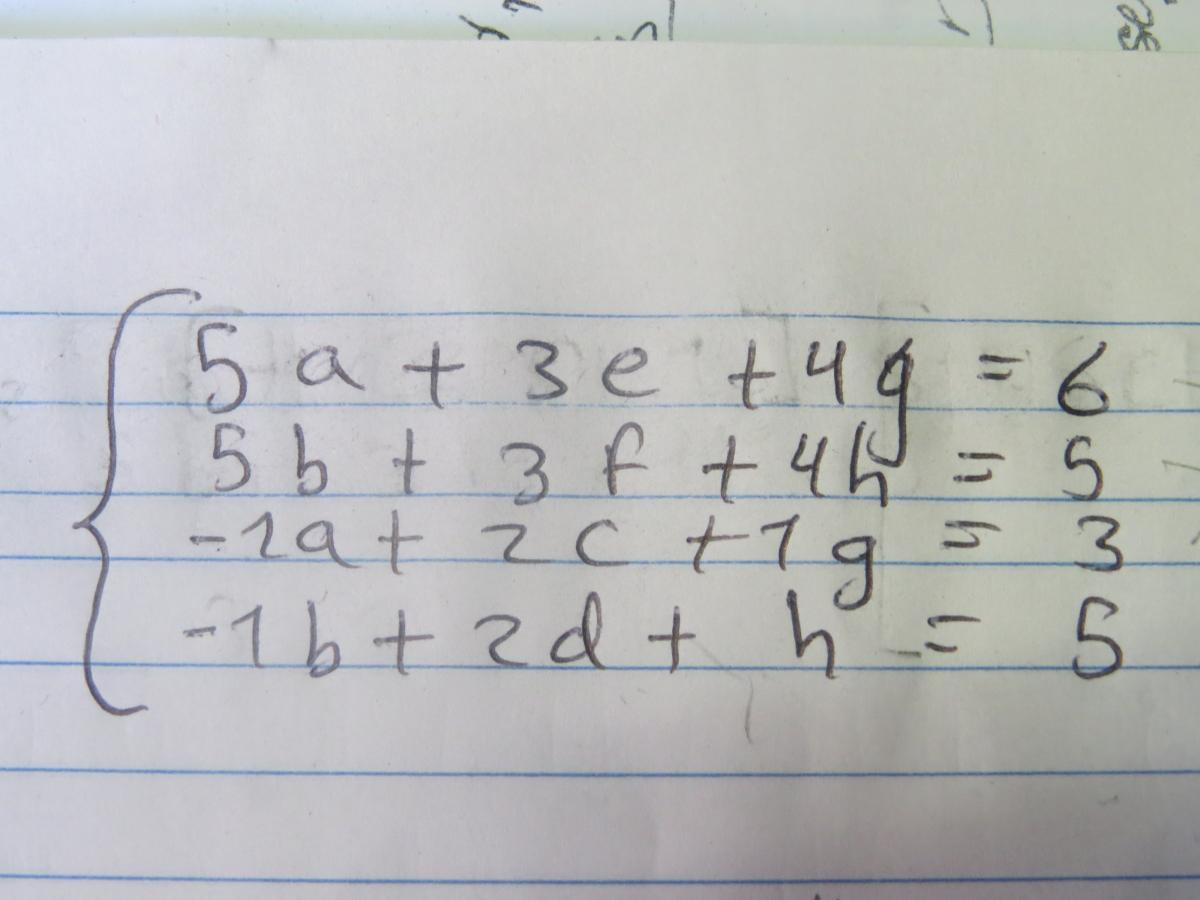 5a + 3e + 4g = 6
5b + 3f + 4h = 5
-1a + 2c + 1g = 3
-1b + 2d + h = 5